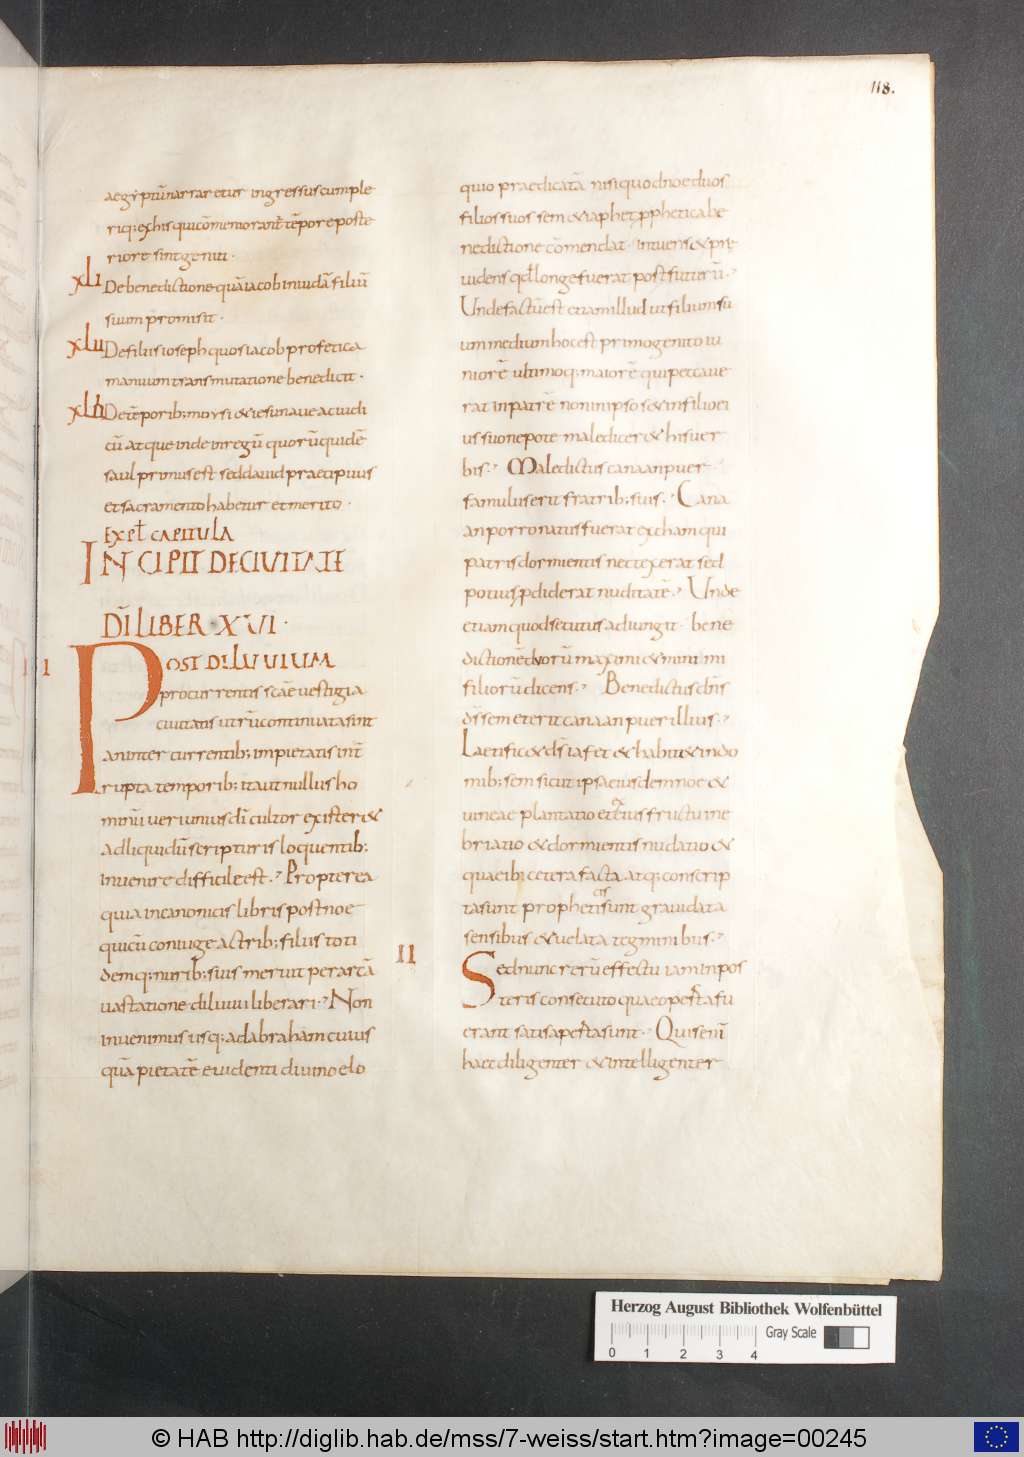 118.
aegyptũ narraretur ingressus cum ple
riq; ex his qui cõmemorant̃ tẽpore poste
riore sint geniti.
xli De benedictione quã iacob in iudã filiũ
suum promisit.
xlii De filiis ioseph quos iacob profetica
manuum transmutatione benedicit.
De tẽporib; moysi & iesu naue ac iudi
cũ atque inde in regũ quorũ quidẽ
saul primus est sed dauid praecipuus
et sacramento habetur et merito.
EXPL̃ CAPITULA
INCIPIT DE CIUITATE
DĨ LIBER XVI.
I POST DILUUIUM
procurrentis scãe uestigia
ciuitatis utrũ continuata sint
an intercurrentib; impietatis int̃
rupta temporib; ita ut nullus ho
minũ ueri unius dĩ cultor existeri&
ad liquidũ scripturis loquentib;
inuenire difficile est. Propterea
quia in canonicis libris post noe
qui cũ coniuge ac trib; filiis toti
demq; nurib; suis meruit per arcã
uastatione diluuii liberari. Non
inuenimus usq; ad abraham cuius
quã pietatẽ euidenti diuino elo
quio praedicatã nisi quod noe duos
filios suos sem & iaph& pphetica be
nedictione cõmendat. intuens & prę
uidens qđ longe fuerat post futurũ.
Unde factũ est etiam illud ut filium su
um medium hoc est primogenito iu
niorẽ ultimoq; maiorẽ qui peccaue
rat in patrẽ non in ipso s& in filio ei
us suo nepote maledicer& his uer
bis. Maledictus canaan puer
famulus erit fratrib; suis. Cana
an porro natus fuerat ex cham qui
patris dormientis nec texerat sed
potius pdiderat nuditatẽ. Unde
etiam quod secutus adiungit bene
dictionẽ duorũ maximi & minimi
filiorũ dicens. Benedictus dñs
dš sem et erit canaan puer illius.
Laetific& dš iafet & habit& in do
mib; sem sicut ipsa eiusdem noe &
uineae plantatio et ex eius fructu ine
briatio & dormientis nudatio &
quae ibi cetera facta atq; conscrip
ta sunt propheticis sunt grauidata
sensibus & uelata tegminibus.
II Sed nunc rerũ effectu iam in pos
teris consecuto quae operta fu
erant satis aperta sunt. Quis enĩ
haec diligenter & intelligenter
Herzog August Bibliothek Wolfenbüttel
Gray Scale
0 1 2 3 4
© HAB http://diglib.hab.de/mss/7-weiss/start.htm?image=00245